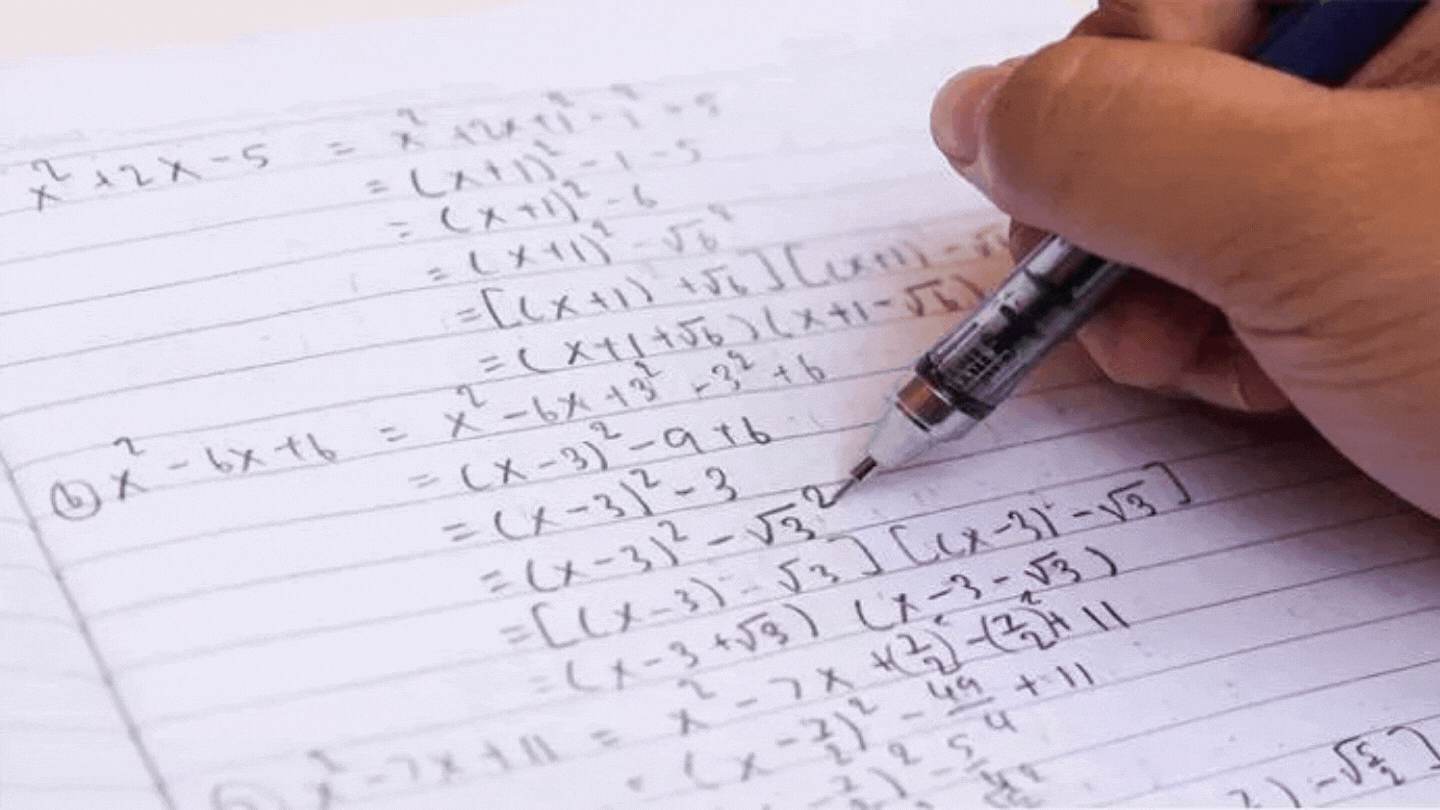 x² + 2x - 5 = x² + 2x + 1² - 1² - 5
= (x+1)² - 1 - 5
= (x+1)² - 6
= (x+1)² - √6²
= [(x+1) + √6] [(x+1) - √
= (x+1+√6)(x+1-√6)
(b) x² - 6x + 6 = x² - 6x + 3² - 3² + 6
= (x-3)² - 9 + 6
= (x-3)² - 3
= (x-3)² - √3²
= [(x-3) - √3] [(x-3) - √3]
= (x-3+√3) (x-3-√3)
x² - 7x + 11 = x² - 7x + (7/2)² - (7/2)² + 11
(x - 7/2)² - 49/4 + 11
) - √5/2]